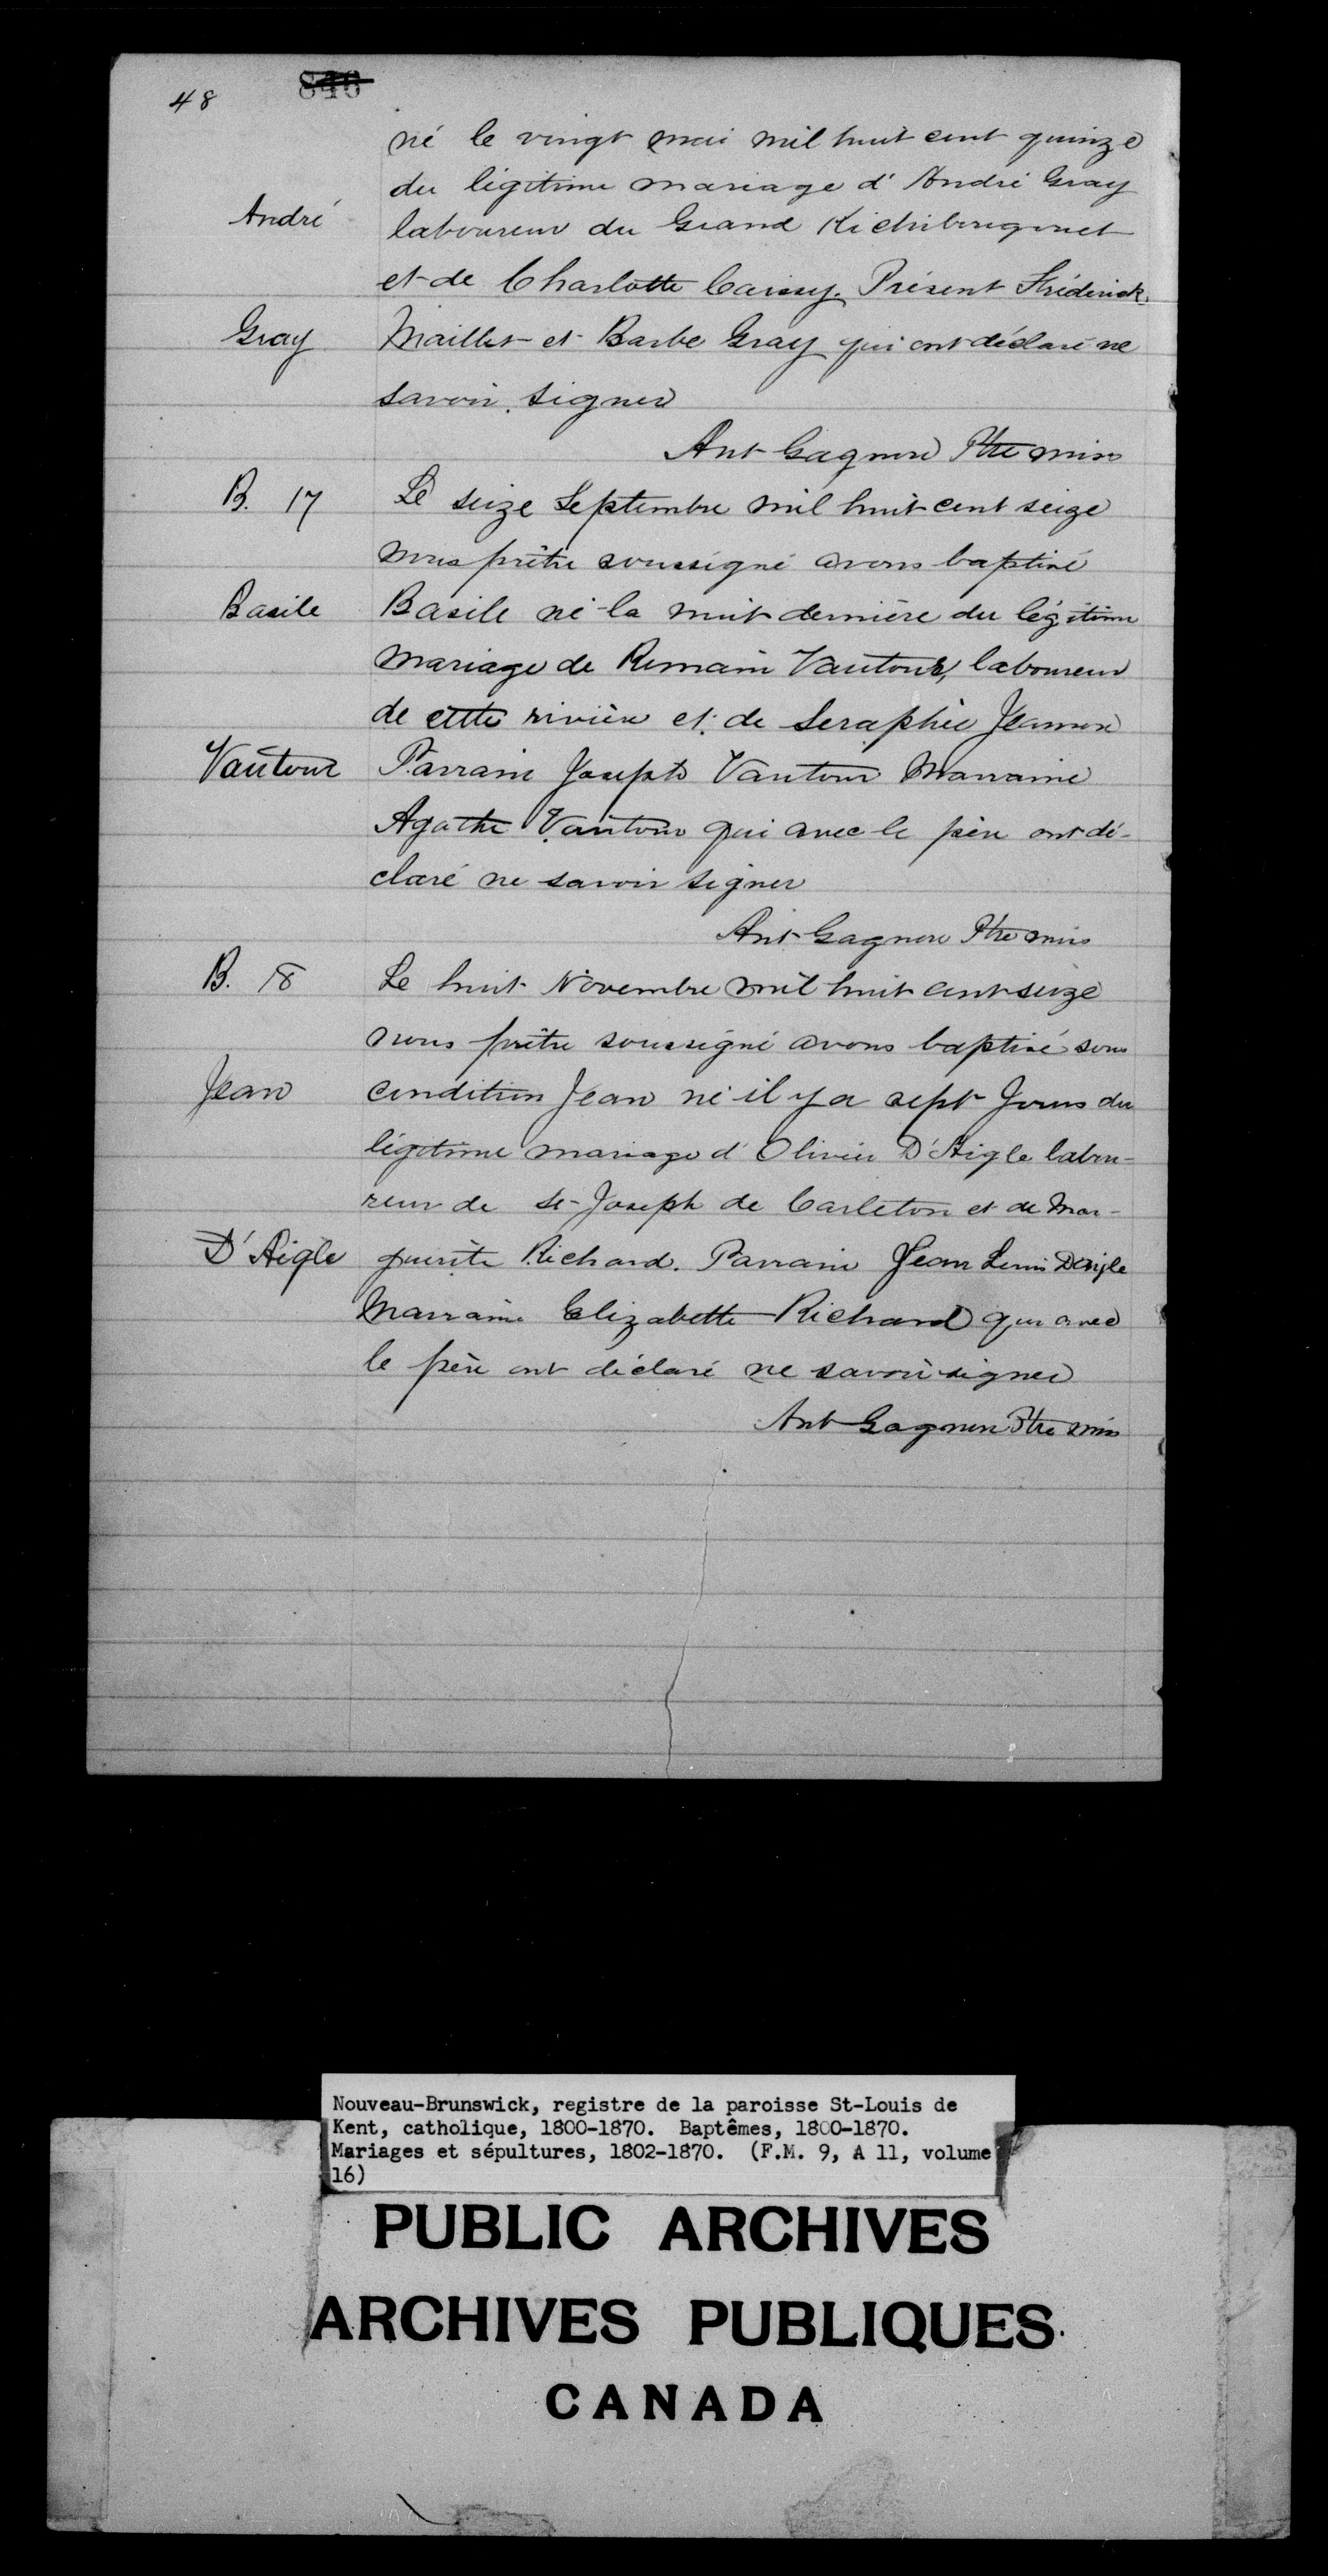 48
846
né le vingt mai mil huit cent quinze
du légitime mariage d'André Gray
André
laboureur du Grand Kichibougouet
et de Charlotte Caissy. Présent Fréderick
Gray
Maillet et Barbe Gray qui ont déclaré ne
savoir signer
Ant Gagnon Ptre miss
B. 17
Le seize Septembre mil huit cent seize
nous prêtre soussigné avons baptisé
Basile
Basile né la nuit dernière du légitime
mariage de Romain Vautour, laboureur
de cette rivière et de Seraphie Jeannon
Vautour
Parrain Joseph Vautour Marraine
Agathe Vautour qui avec le père ont dé-
claré ne savoir signer
Ant Gagnon Ptre miss
B. 18
Le huit Novembre mil huit cent seize
nous prêtre soussigné avons baptisé sous
Jean
condition Jean né il y a sept Jours du
légitime mariage d'Olivier D'Aigle labou-
reur de St-Joseph de Carleton et de Mar-
D'Aigle
guerite Richard. Parrain Jean Louis Daigle
Marraine Elizabette Richard qui avec
le père ont déclaré ne savoir signer
Ant Gagnon Ptre miss
Nouveau-Brunswick, registre de la paroisse St-Louis de
Kent, catholique, 1800-1870. Baptêmes, 1800-1870.
Mariages et sépultures, 1802-1870. (F.M. 9, A 11, volume
16)
PUBLIC ARCHIVES
ARCHIVES PUBLIQUES
CANADA